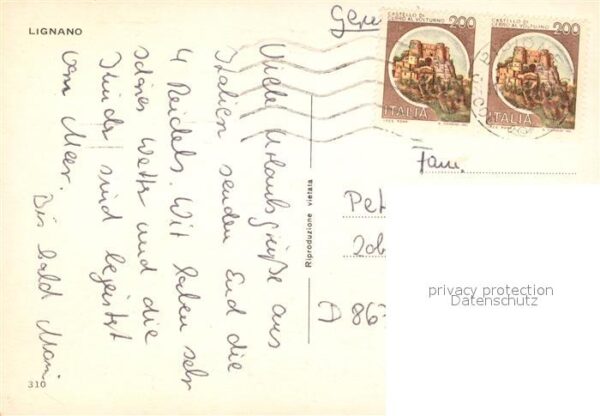 LIGNANO
Viele Urlaubsgrüße aus
Italien senden Euch die
4 Reidels. Wir haben sehr
schönes Wetter und die
Kinder sind begeistert
vom Meer.
Bis bald
310
Riproduzione vietata
CASTELLO DI
CERRO AL VOLTURNO 200
ITALIA
CASTELLO DI
CERRO AL VOLTURNO 200
ITALIA
Fam.
Pet
A 867
privacy protection
Datenschutz